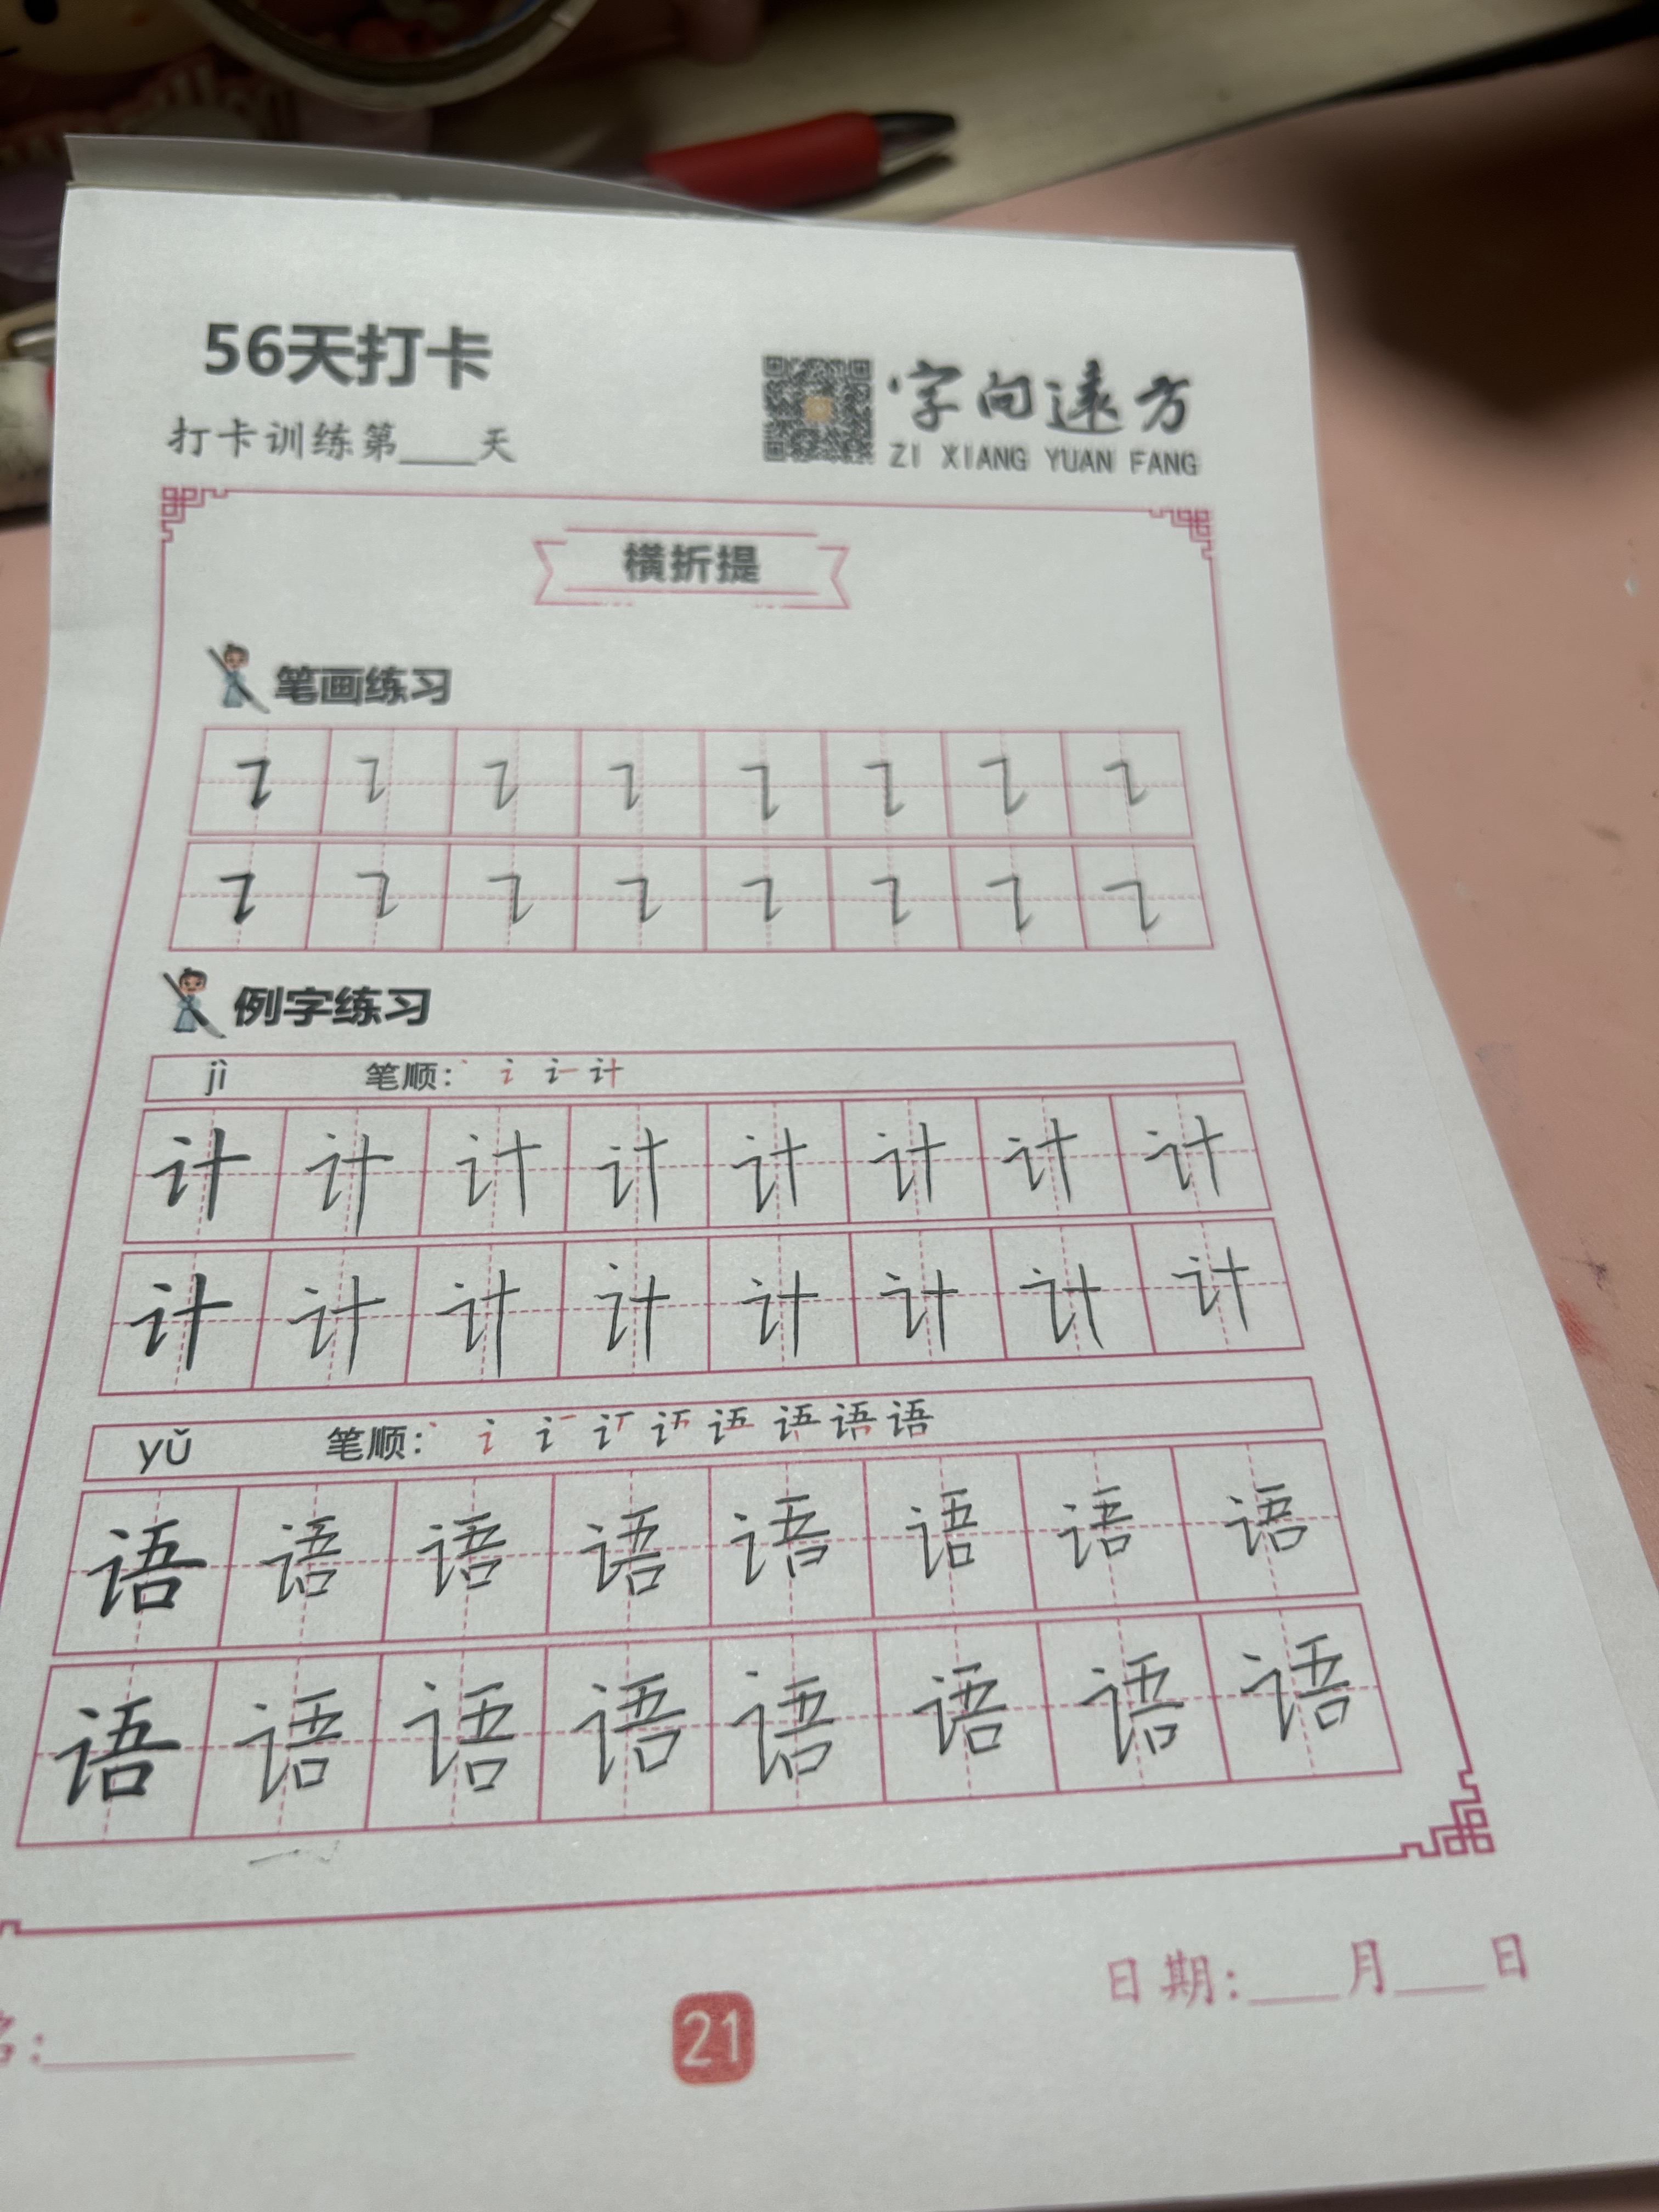 56天打卡
打卡训练第___天
字向远方
ZI XIANG YUAN FANG
横折提
笔画练习
㇊ ㇊ ㇊ ㇊ ㇊ ㇊ ㇊ ㇊
㇊ ㇊ ㇊ ㇊ ㇊ ㇊ ㇊ ㇊
例字练习
jì 笔顺: 计
计 计 计 计 计 计 计 计
计 计 计 计 计 计 计 计
yǔ 笔顺: 语 语 语
语 语 语 语 语 语 语 语
语 语 语 语 语 语 语 语
日期:___月___日
名:
21